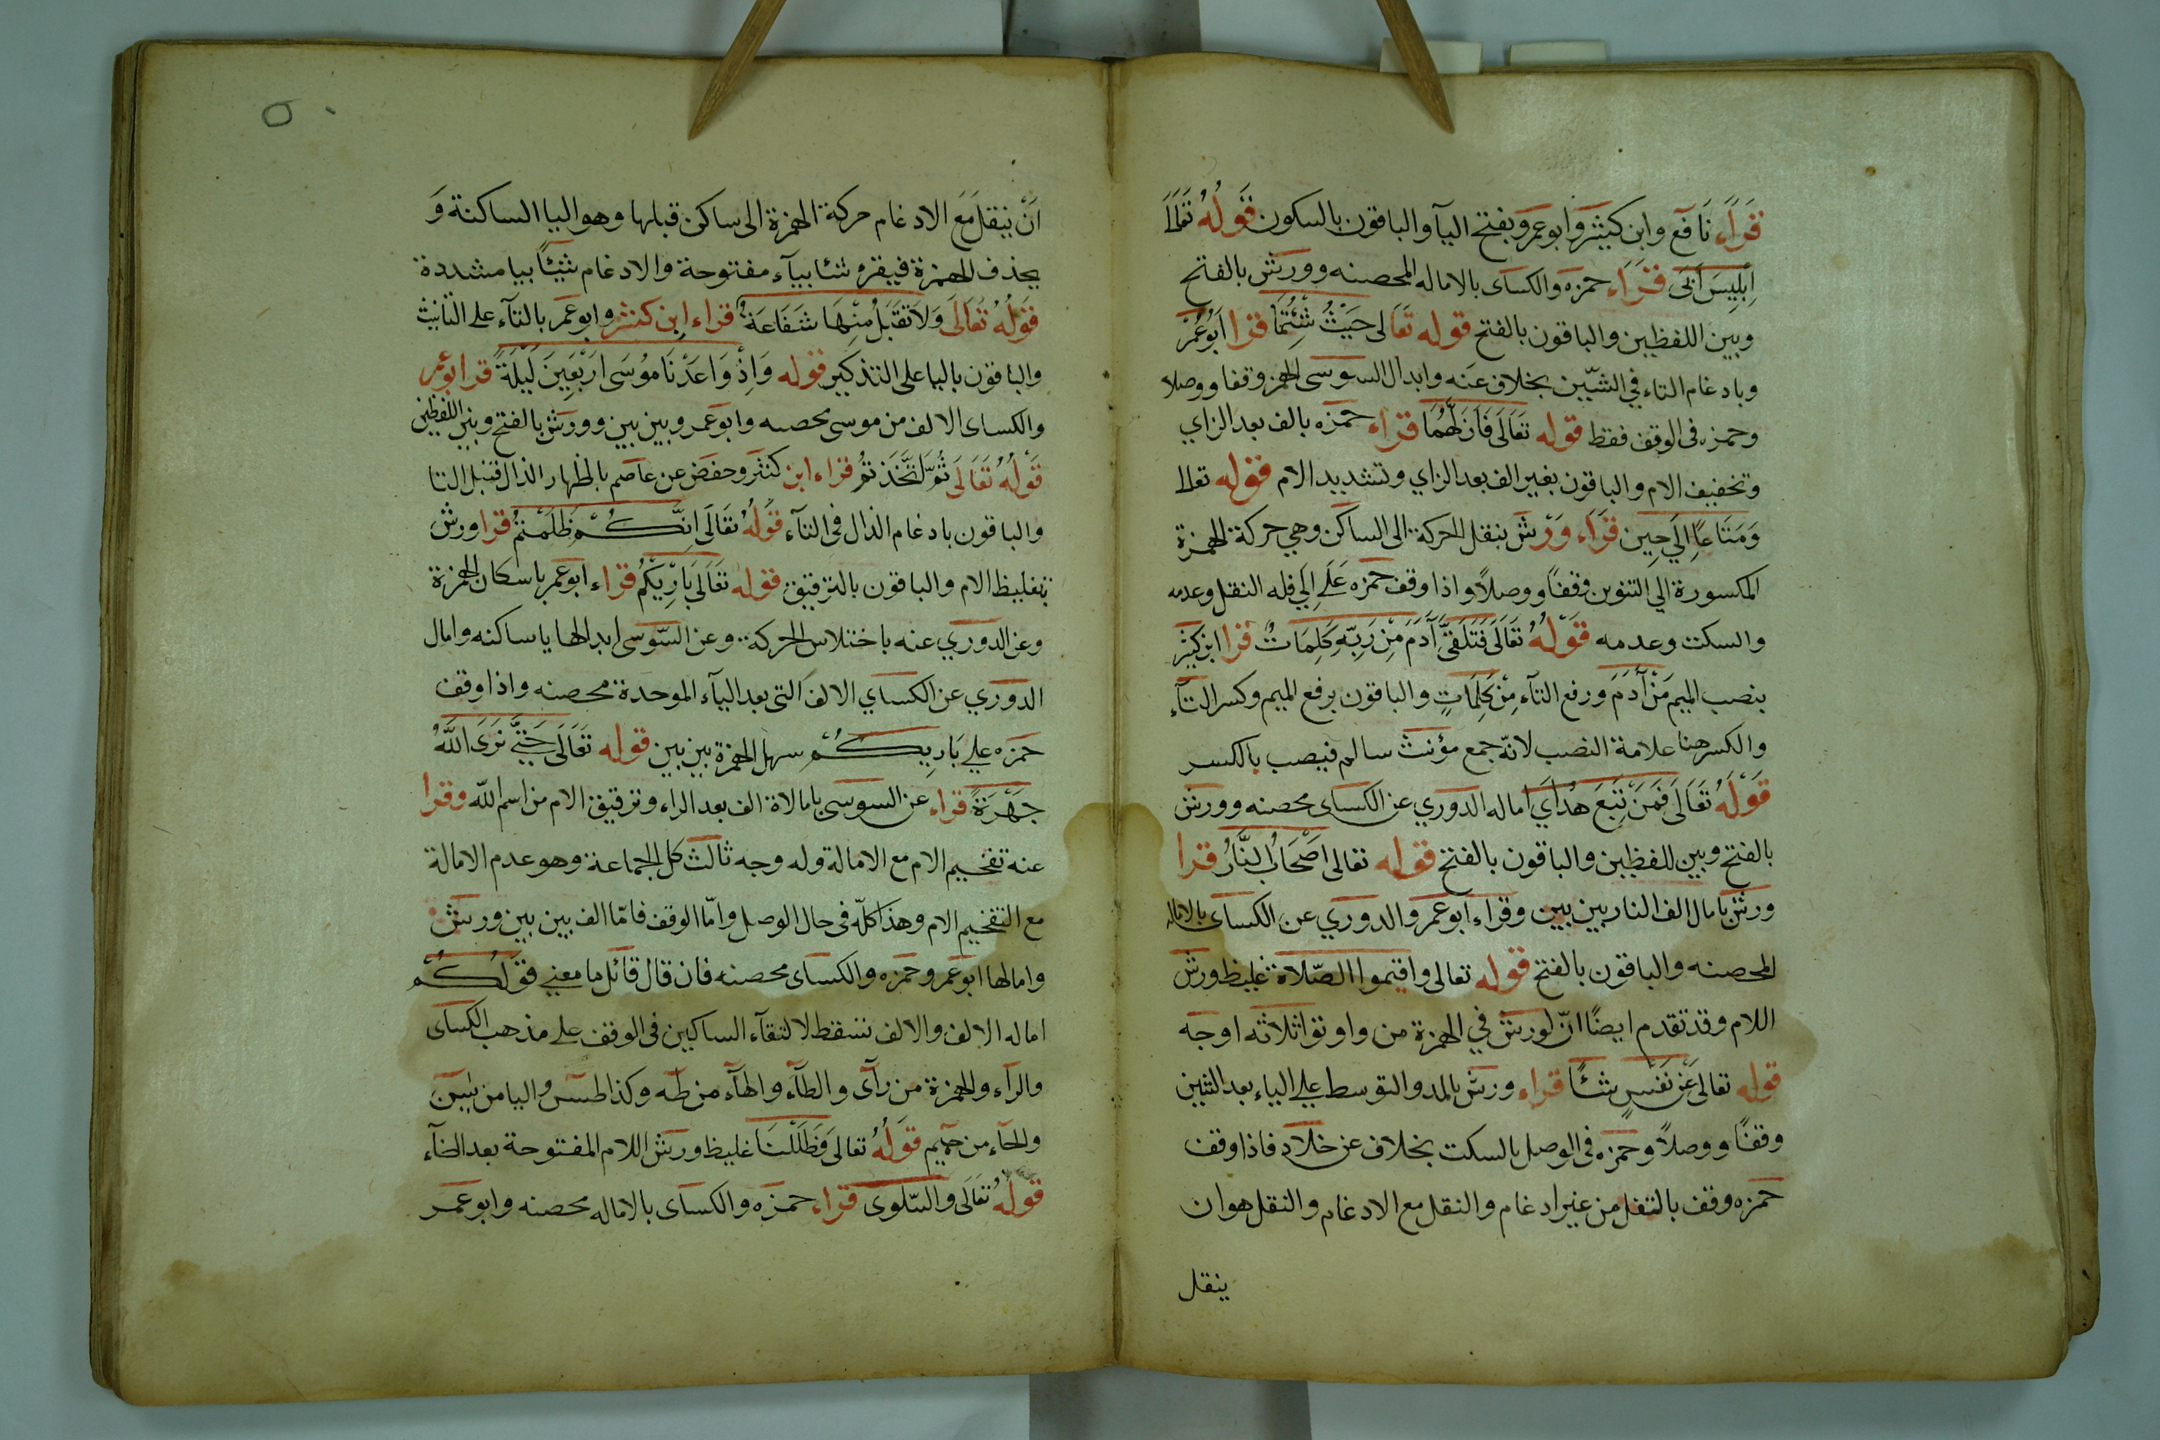 قراء نافع وابن كثير وابو عمرو بفتح اليآ والباقون بالسكون قوله تعالى
ابليس ابى قراء حمزه والكساى بالاماله المحصنه وورش بالفتح
وبين اللفظين والباقون بالفتح قوله تعالى حيث شئتما قرا ابو عمر
وبادغام التاء في الشين بخلاف عنه وابدال السوسى الهمز وقفا ووصلا
وحمزه فى الوقف فقط قوله تعالى فازلهما قراء حمزه بالف بعد الزاي
وتخفيف الام والباقون بغير الف بعد الزاي وتشديد الام قوله تعالا
ومتاعا الي حين قراء ورش بنقل الحركة الى الساكن وهي حركة الهمزة
المكسورة الي التنوين وقفا ووصلا واذا وقف حمزه على الي فله النقل وعدمه
والسكت وعدمه قوله تعالى فتلقى آدم من ربه كلمات قرا ابن كثير
بنصب الميم من آدم ورفع التآء من كلمات والباقون برفع الميم وكسر التآء
والكسر هنا علامة النصب لانه جمع مؤنث سالم فينصب بالكسر
قوله تعالى فمن تبع هداي اماله الدوري عن الكساى محصنه وورش
بالفتح وبين اللفظين والباقون بالفتح قوله تعالى اصحاب النار قرا
ورش بامال الف النار بين بين وقراء ابو عمر والدوري عن الكساى بالاماله
المحصنه والباقون بالفتح قوله تعالى واقيموا الصلاة غليظ ورش
اللام وقد تقدم ايضا ان لورش في الهمزة من واوتوا ثلاثه اوجه
قوله تعالى عن نفس شئا قراء ورش بالمد والتوسط على الياء بعد الشين
وقفا ووصلا وحمزه فى الوصل بالسكت بخلاف عن خلاد فاذا وقف
حمزه وقف بالنقل من غير ادغام والنقل مع الادغام والنقل هوان
ينقل
ان ينقل مع الادغام حركة الهمزة الى ساكن قبلها وهو اليا الساكنة و
يحذف الهمزة فيقرو شئا بيآء مفتوحة والادغام شيئا بيا مشددة
قوله تعالى ولا تقبل منها شفاعة قراء ابن كثير وابو عمر بالتآء على التانيث
والباقون باليا على التذكير قوله واذ واعدنا موسى اربعين ليلة قرا ابو عمر
والكساى الالف من موسى محصنه وابو عمر وبين بين وورش بالفتح وبين اللفظين
قوله تعالى ثم اتخذتم قراء ابن كثير وحفص عن عاصم بالظهار الذال قبل التا
والباقون بادغام الذال فى التآء قوله تعالى انكم ظلمتم قرا ورش
بتغليظ الام والباقون بالترقيق قوله تعالى باريكم قراء ابو عمر باسكان الهمزة
وعن الدوري عنه باختلاس الحركة وعن السوسى ابدالها يا ساكنه وامال
الدوري عن الكساي الالف التى بعد البآء الموحدة محصنه واذا وقف
حمزه علي باريكم سهل الهمزة بين بين قوله تعالى حتى نرى الله
جهرة قراء عن السوسى بامالاة الف بعد الراء وترقيق الام من اسم الله وقرا
عنه تفخيم الام مع الامالة وله وجه ثالث كل الجماعة وهو عدم الامالة
مع التفخيم الام وهذا كله فى حال الوصل واما الوقف فاما الف بين بين ورش
وامالها ابو عمر وحمزه والكساى محصنه فان قال قائل ما معني قولكم
اماله الالف والالف تسقط لالتقآء الساكين فى الوقف على مذهب الكساى
والرآء والهمزة من رآى والطآء والهآء من طه وكذا طس واليا من يس
والحآء من حميم قوله تعالى وظللنا غليظ ورش اللام المفتوحة بعد الظآء
قوله تعالى والسلوى قراء حمزه والكساى بالاماله محصنه وابو عمر